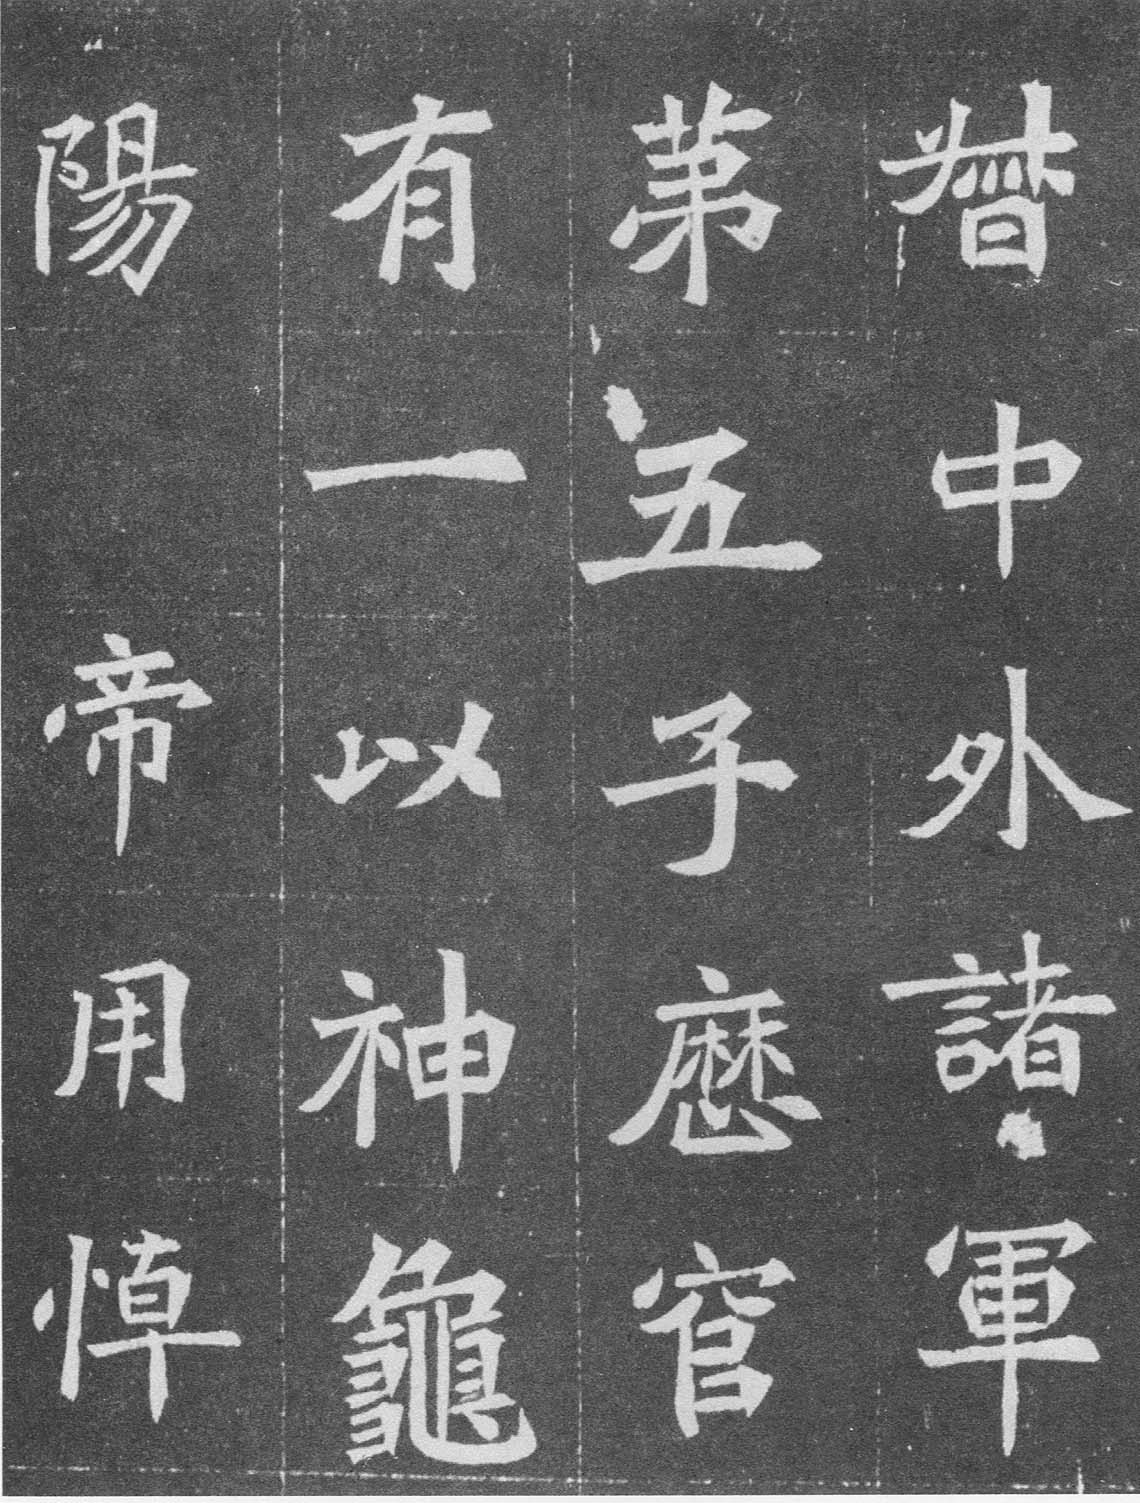 督中外諸軍
苐五子歷官
有一以神龜
陽 帝用悼